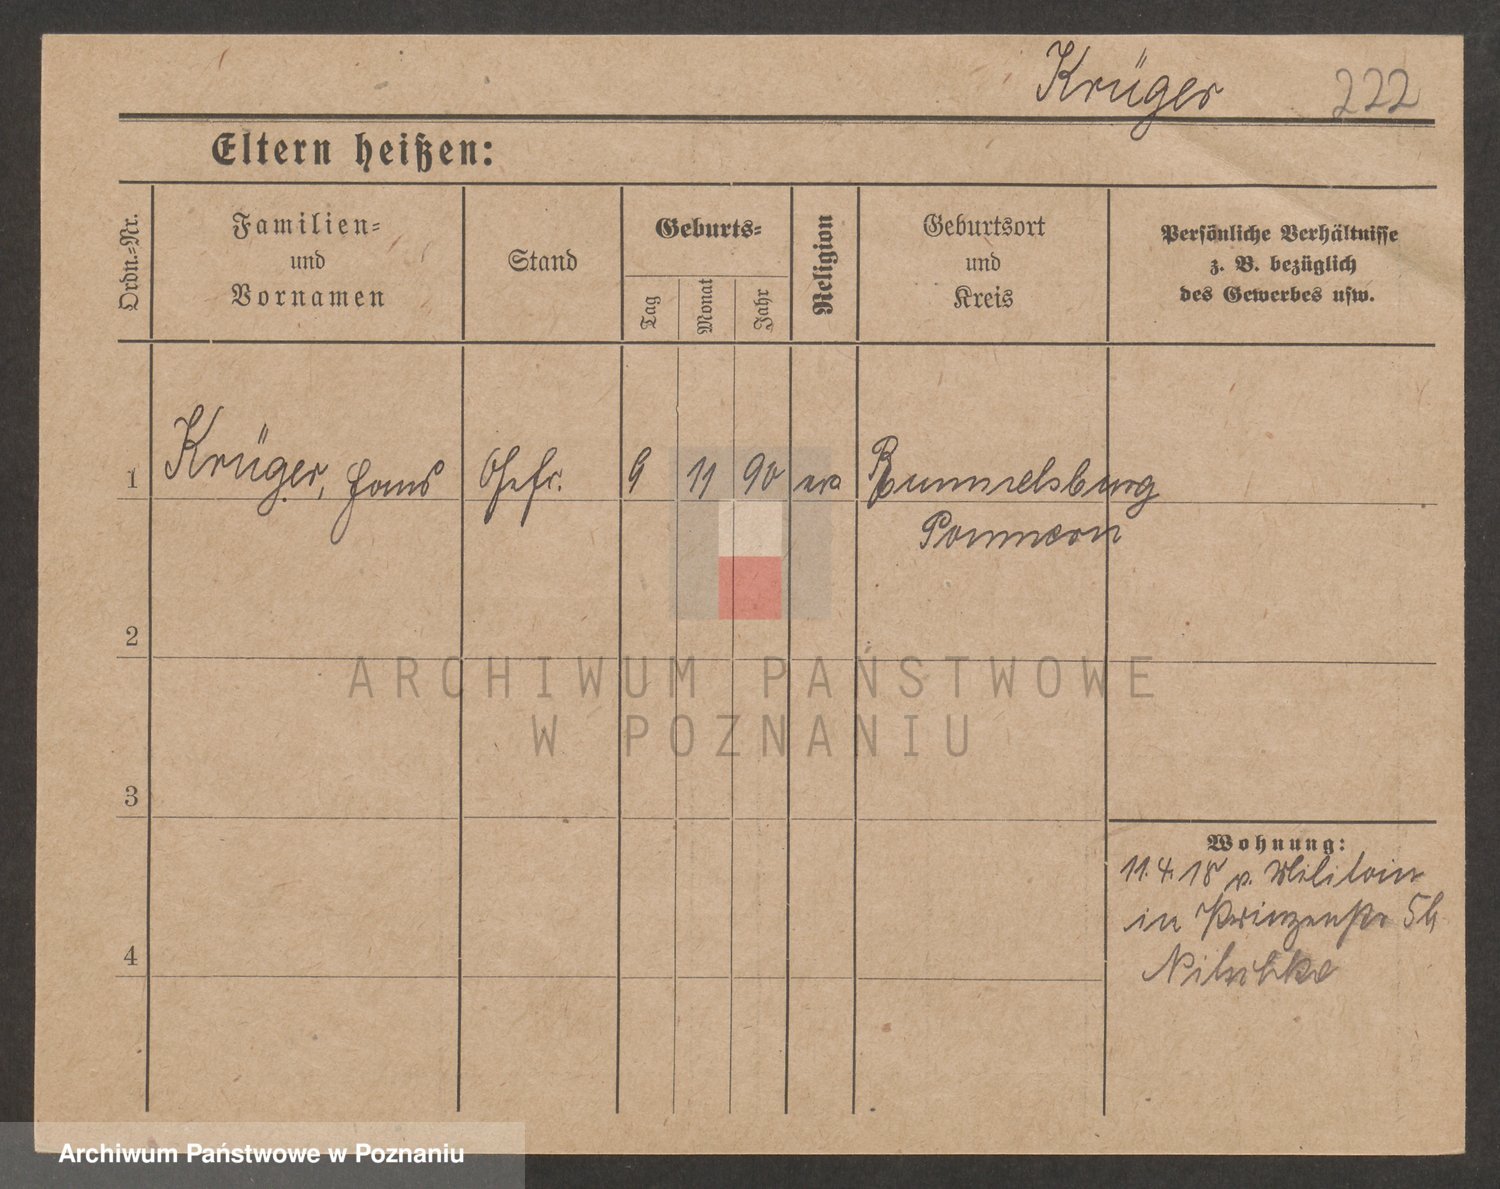 Krüger 222
Eltern heißen:
Ordn.-Nr.
Familien-
und
Vornamen
Stand
Geburts-
Tag
Monat
Jahr
Religion
Geburtsort
und
Kreis
Persönliche Verhältnisse
z. B. bezüglich
des Gewerbes usw.
1 Krüger, Hans Gefr. 9 11 90 ev Rummelsburg
Pommern
2
ARCHIWUM PAŃSTWOWE
W POZNANIU
3
Wohnung:
11.4.18 v. Militär
in Prinzenstr
4
Nitschke
Archiwum Państwowe w Poznaniu